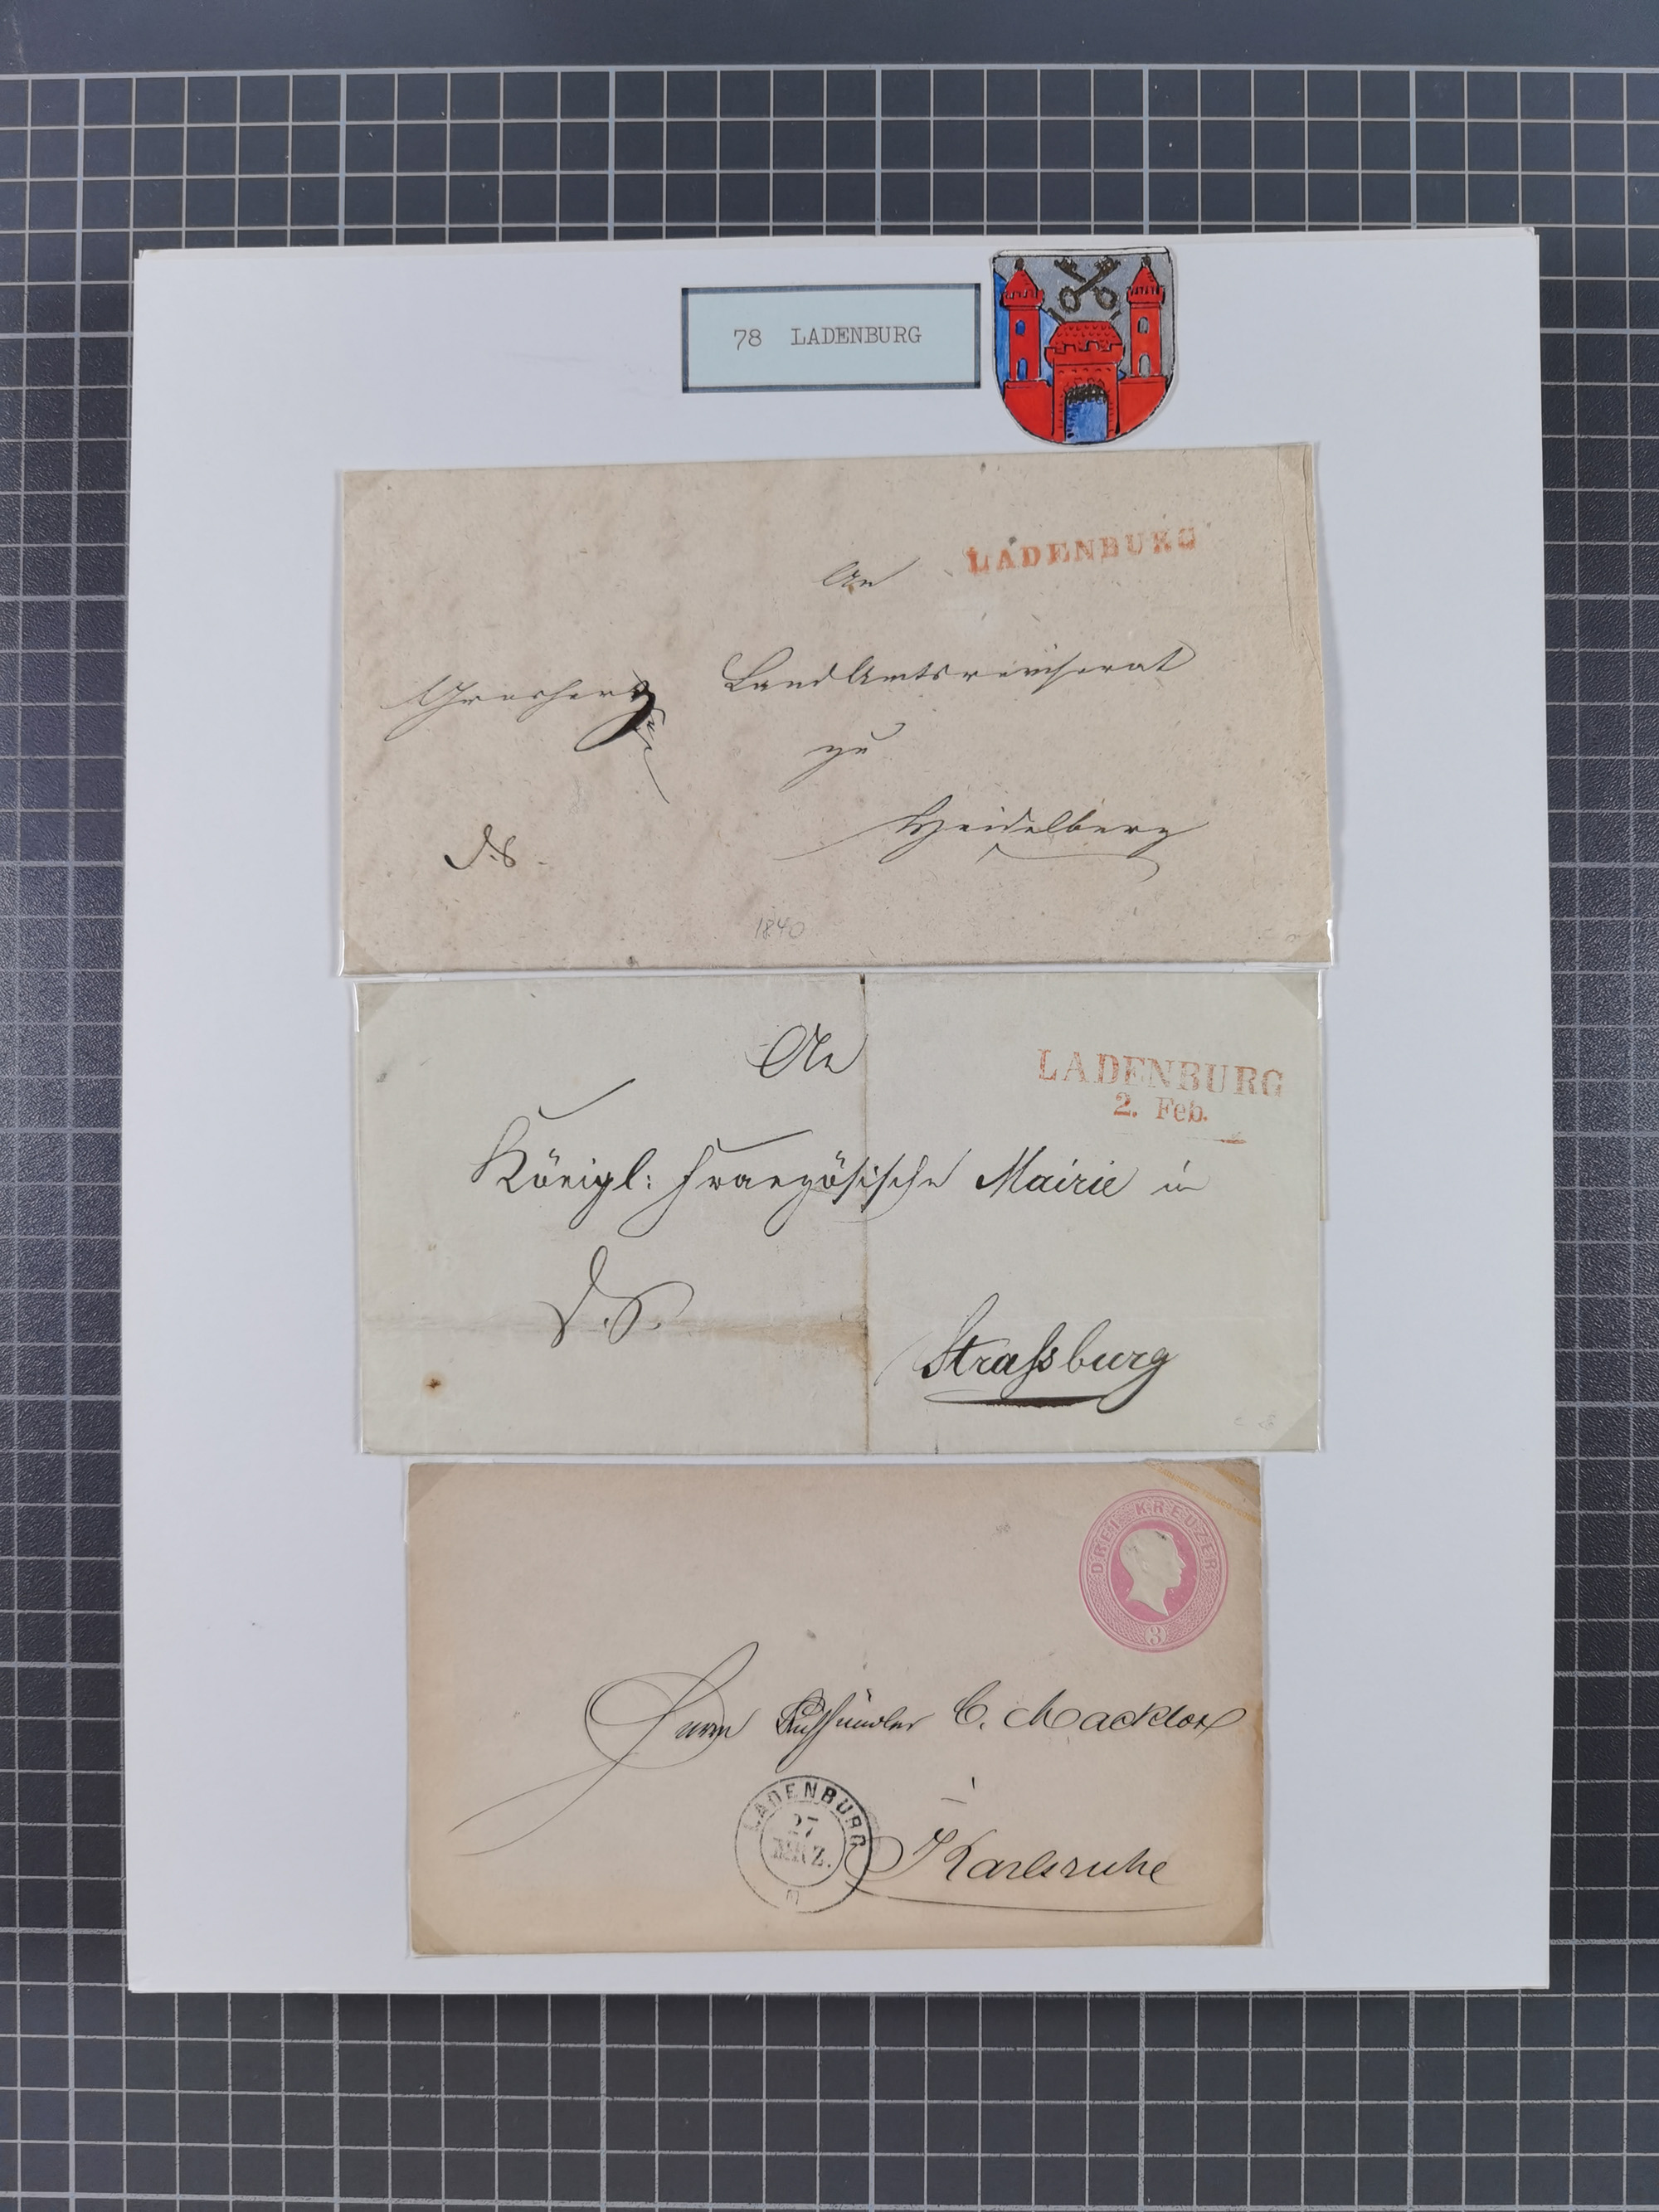 78 LADENBURG
LADENBURG
An
Grosherz LandAmtsrevisorat
zu
Heidelberg
D.S.
1840
LADENBURG
2. Feb.
An
Königl: Französische Mairie in
D.S.
Straßburg
DREI KREUZER
3
Herrn C. Macklot
Karlsruhe
LADENBURG
27
MRZ.